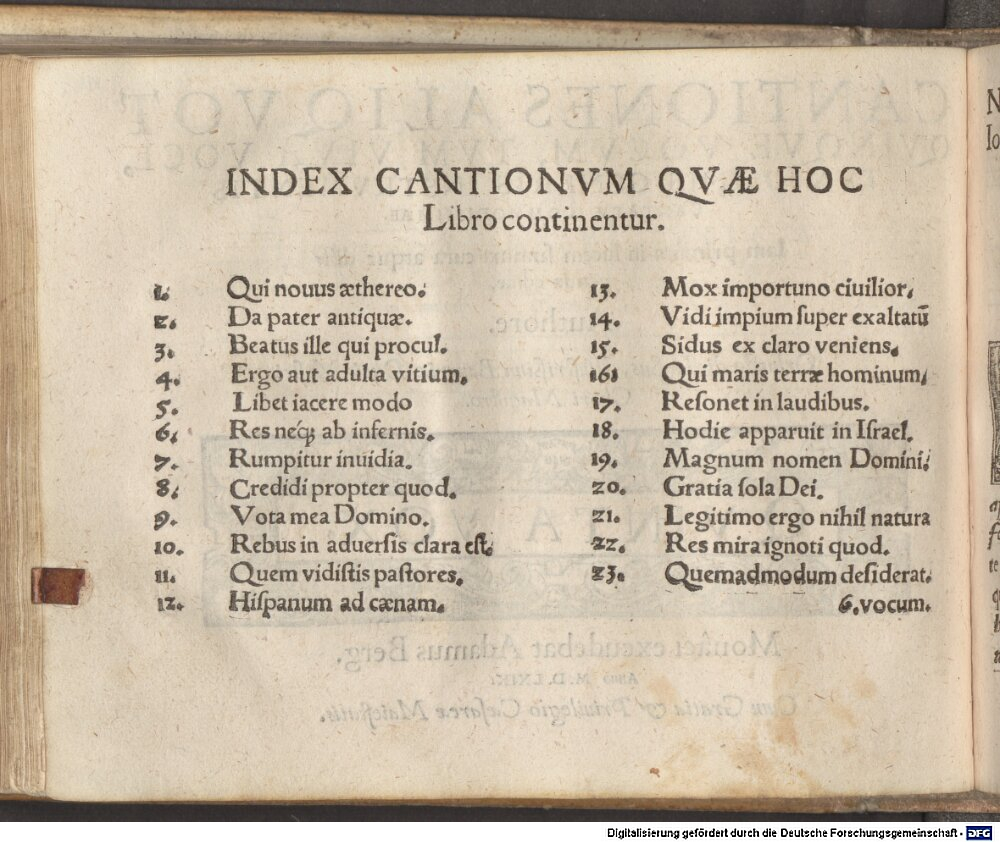 INDEX CANTIONVM QVÆ HOC
Libro continentur.
1. Qui nouus æthereo.
2. Da pater antiquæ.
3. Beatus ille qui procul.
4. Ergo aut adulta vitium.
5. Libet iacere modo
6. Res neq; ab infernis.
7. Rumpitur inuidia.
8. Credidi propter quod.
9. Vota mea Domino.
10. Rebus in aduersis clara est.
11. Quem vidistis pastores.
12. Hispanum ad cænam.
13. Mox importuno ciuilior.
14. Vidi impium super exaltatū
15. Sidus ex claro veniens.
16. Qui maris terræ hominum.
17. Resonet in laudibus.
18. Hodie apparuit in Israel.
19. Magnum nomen Domini.
20. Gratia sola Dei.
21. Legitimo ergo nihil natura
22. Res mira ignoti quod.
23. Quemadmodum desiderat.
6. vocum.
Digitalisierung gefördert durch die Deutsche Forschungsgemeinschaft - DFG